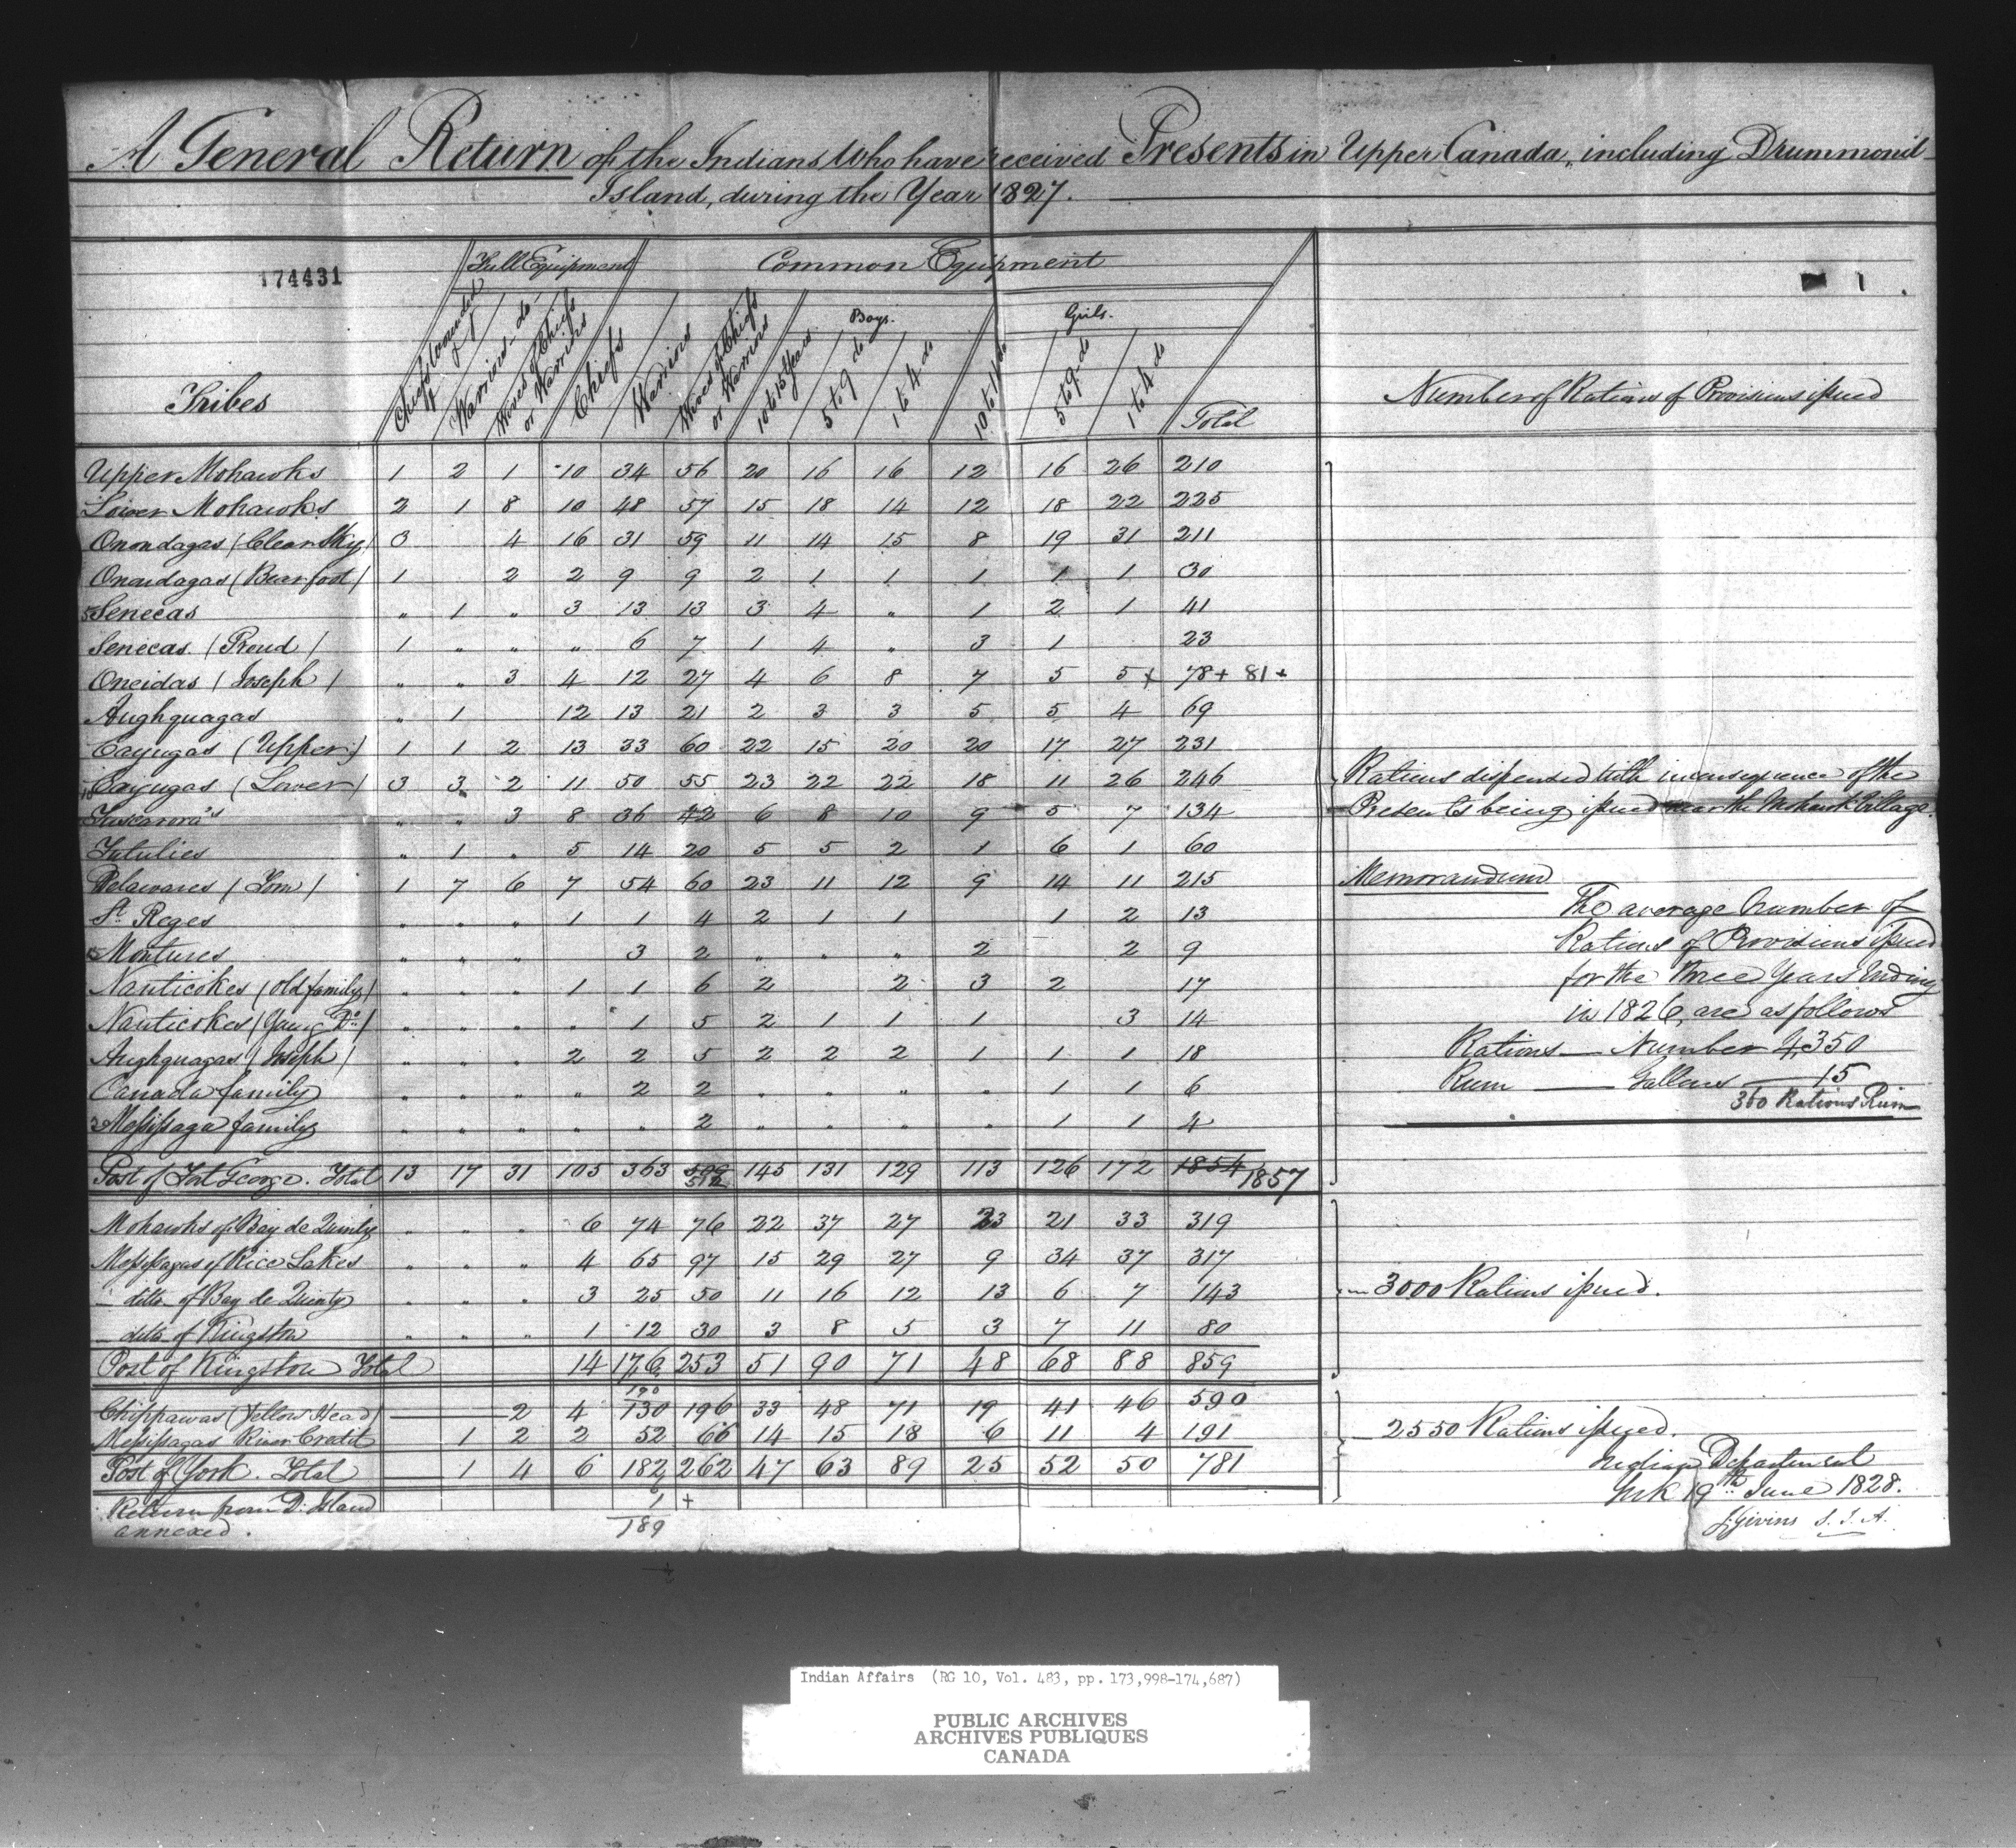 A General Return of the Indians Who have received Presents in Upper Canada, including Drummond
Island, during the Year 1827.
174431
Full Equipment Common Equipment
1
Boys. Girls.
Tribes Chiefs Wounded Warriors - do - Wives of Chiefs or Warriors Chiefs Warriors Wives of Chiefs or Warriors 10 to 15 Years 5 to 9 do 1 to 4 do 10 to 14 do 5 to 9 do 1 to 4 do Total Number of Rations of Provisions issued
Upper Mohawks 1 2 1 10 34 56 20 16 16 12 16 26 210
Lower Mohawks 2 1 8 10 48 57 15 18 14 12 18 22 225
Onondagas (Clear Sky) 3 4 16 31 59 11 14 15 8 19 31 211
Onondagas (Bearfoot) 1 2 2 9 9 2 1 1 1 1 1 30
5 Senecas " 1 " 3 13 13 3 4 " 1 2 1 41
Senecas (Proud) 1 " " " 6 7 1 4 " 3 1 23
Oneidas (Joseph) " " 3 4 12 27 4 6 8 7 5 5 + 78 + 81 +
Aughquagas " 1 12 13 21 2 3 3 5 5 4 69
Cayugas (Upper) 1 1 2 13 33 60 22 15 20 20 17 27 231
10 Cayugas (Lower) 3 3 2 11 50 55 23 22 22 18 11 26 246 Rations dispensed with inconsequence of the
Tuscarora's " " 3 8 36 42 6 8 10 9 5 7 134 Presents being issued near the Mohawk Village.
Tutulies " 1 " 5 14 20 5 5 2 1 6 1 60
Delawares (Tom) 1 7 6 7 54 60 23 11 12 9 14 11 215 Memorandum
St. Reges " " " 1 1 4 2 1 1 1 2 13 The average Number of
15 Montures " " " 3 2 " " " 2 2 9 Rations of Provisions issued
Nanticokes (Old family) " " " 1 1 6 2 2 3 2 17 for the three Years Ending
Nanticokes (Young Do.) " " " " 1 5 2 1 1 1 3 14 in 1826, are as follows
Aughquagas (Joseph) " " " 2 2 5 2 2 2 1 1 1 18 Rations — Number 4,350
Canada family " " " " 2 2 " " " " 1 1 6 Rum — Gallons — 15
360 Rations Rum
Messissaga family " " " " " 2 " " " " 1 1 4
Post of Fort George. Total 13 17 31 105 363 509 512 145 131 129 113 126 172 1854 1857
Mohawks of Bay de Quinty " " " 6 74 76 22 37 27 23 21 33 319
Messissagas of Rice Lakes " " " 4 65 97 15 29 27 9 34 37 317
- ditto of Bay de Quinty " " " 3 25 50 11 16 12 13 6 7 143 3000 Rations issued.
- ditto of Kingston " " " 1 12 30 3 8 5 3 7 11 80
Post of Kingston Total 14 176 253 51 90 71 48 68 88 859
190
Chippawas (Yellow Head) 2 4 130 196 33 48 71 19 41 46 590
Messissagas River Credit 1 2 2 52 66 14 15 18 6 11 4 191 2550 Rations issued.
Post of York. Total 1 4 6 182 262 47 63 89 25 52 50 781 Indian Department
York 19th June 1828.
Return from D. Island 1 +
annexed. 189 J. Givins S.I.A.
Indian Affairs (RG 10, Vol. 483, pp. 173,998-174,687)
PUBLIC ARCHIVES
ARCHIVES PUBLIQUES
CANADA